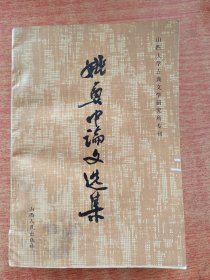 山西大学古典文学研究所专刊
姚奠中論文选集
山西人民出版社